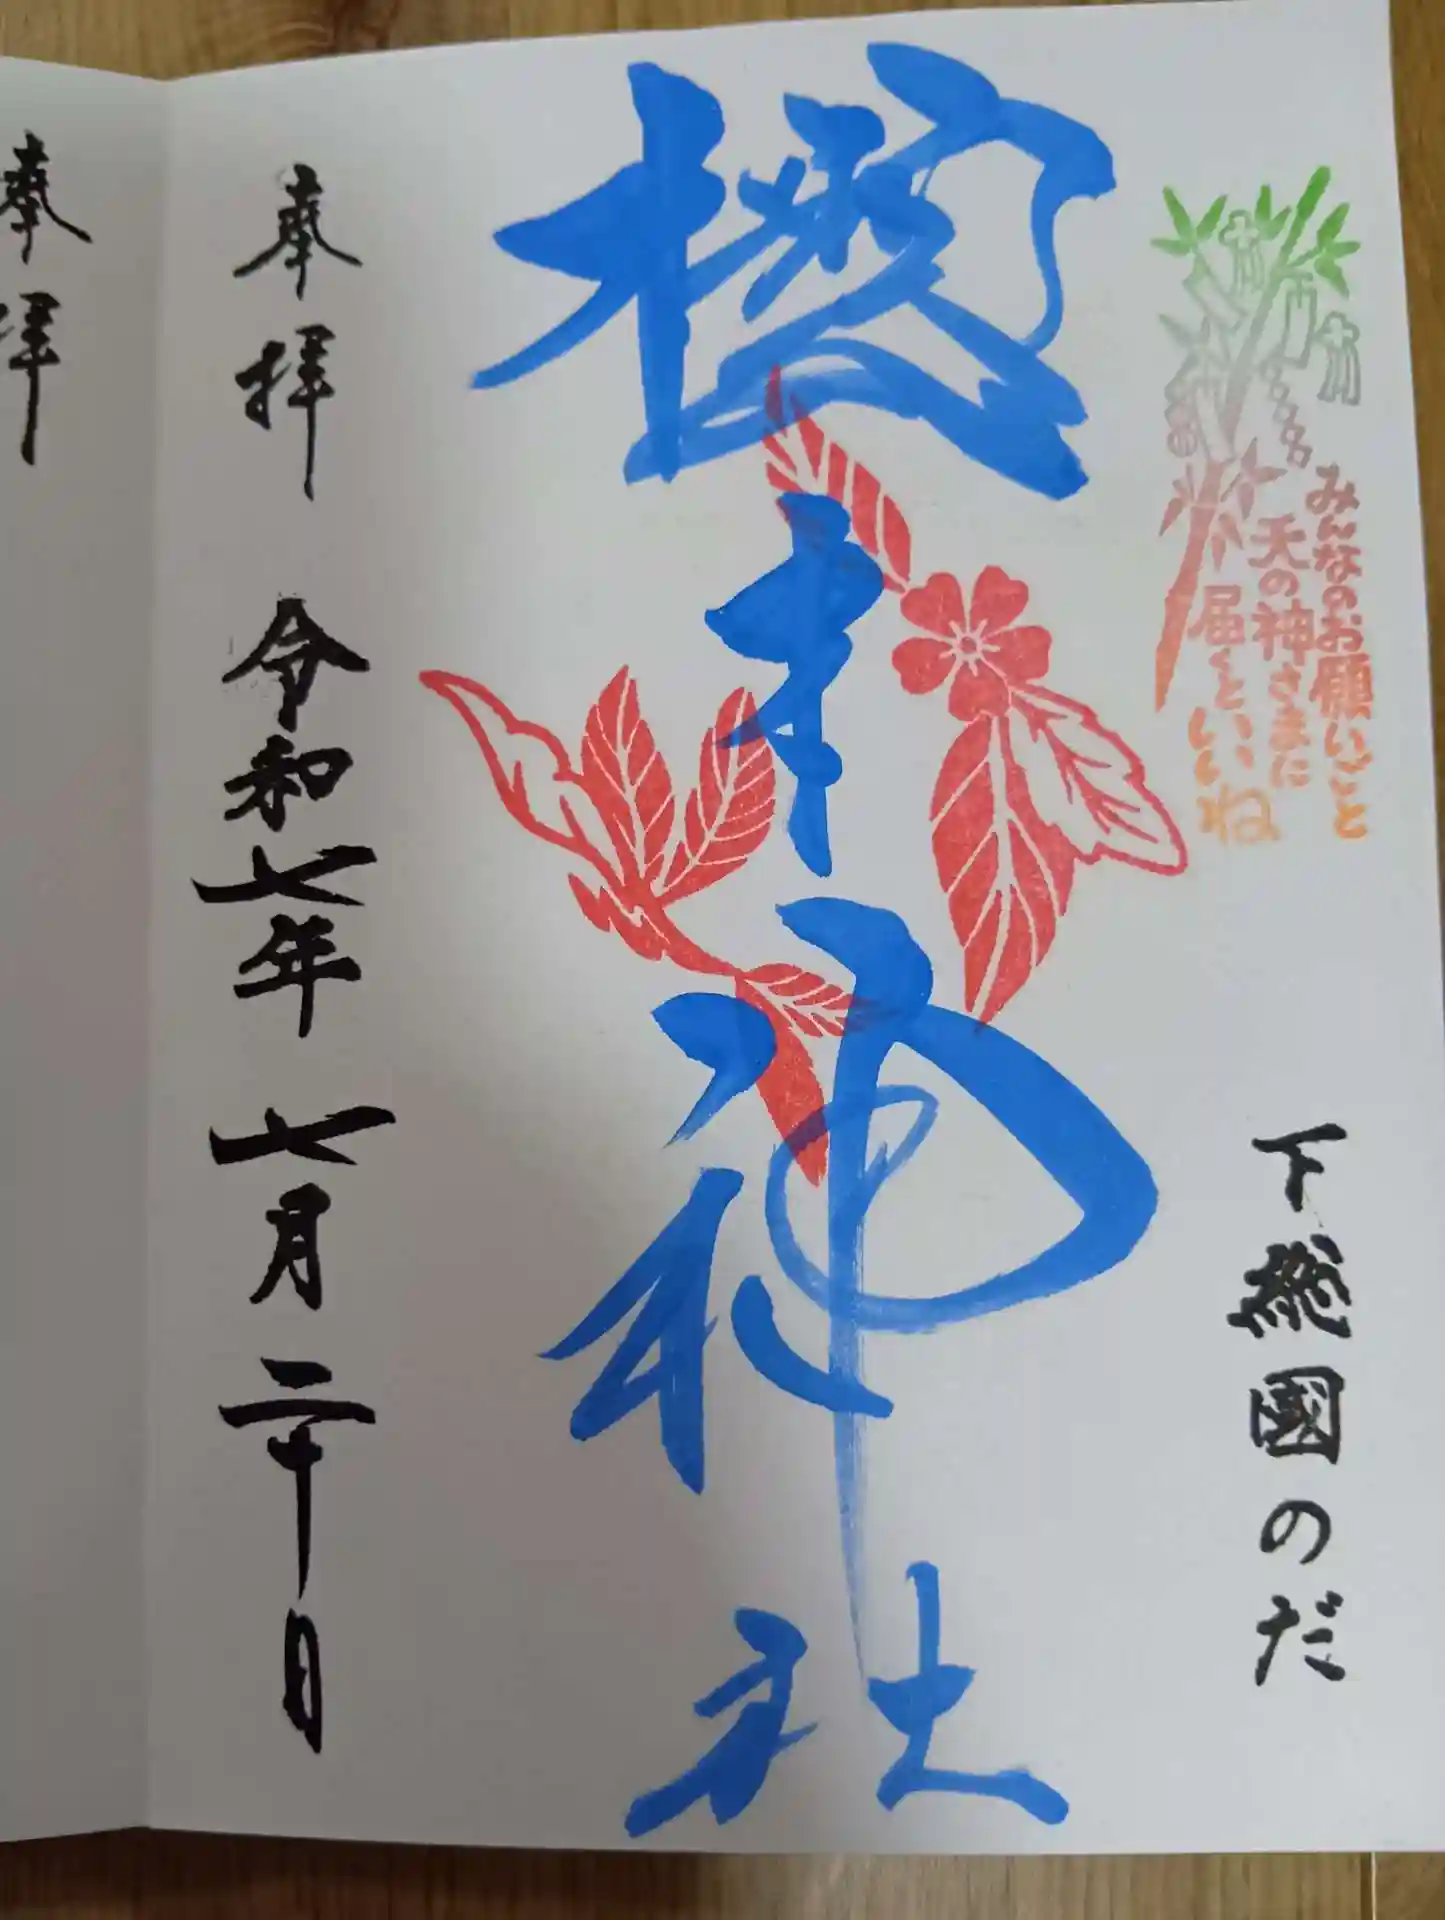 みんなのお願いごと
天の神さまに
届くといいね
下総國のだ
櫻木神社
奉拝 令和七年 七月 二十日
奉拝